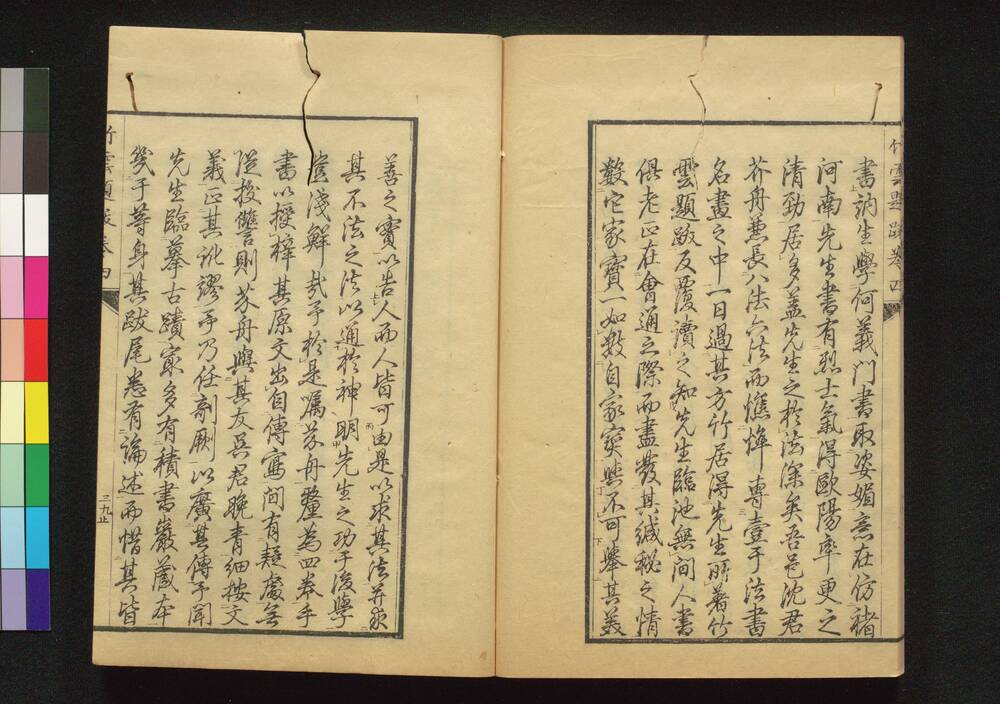 竹雲題跋卷四
書訥生學何義門書取姿媚意在仿褚
河南先生書有烈士氣得歐陽率更之
清勁居多蓋先生之於法深矣吾邑沈君
芥舟兼長八法六法而憔悴專壹于法書
名畫之中一日過其方竹居得先生所著竹
雲題跋反覆讀之知先生臨池無間人書
俱老正在會通之際而盡發其緘秘之情
數它家寶一如數自家寶典不可舉其義
善之寶以告人而人皆可由是以求其法并求
其不法之法以通於神明先生之功于後學
淺鮮哉予於是囑芥舟釐為四卷手
書以授梓其原文出自傳寫間有疑處無
從校讎則芥舟與其友吳君晚青細按文
義正其訛謬予乃任剞劂以廣其傳予聞
先生臨摹古蹟最多有積書巖藏本
幾于等身其跋尾悉有論述而惜其皆
竹雲題跋卷四
三九止